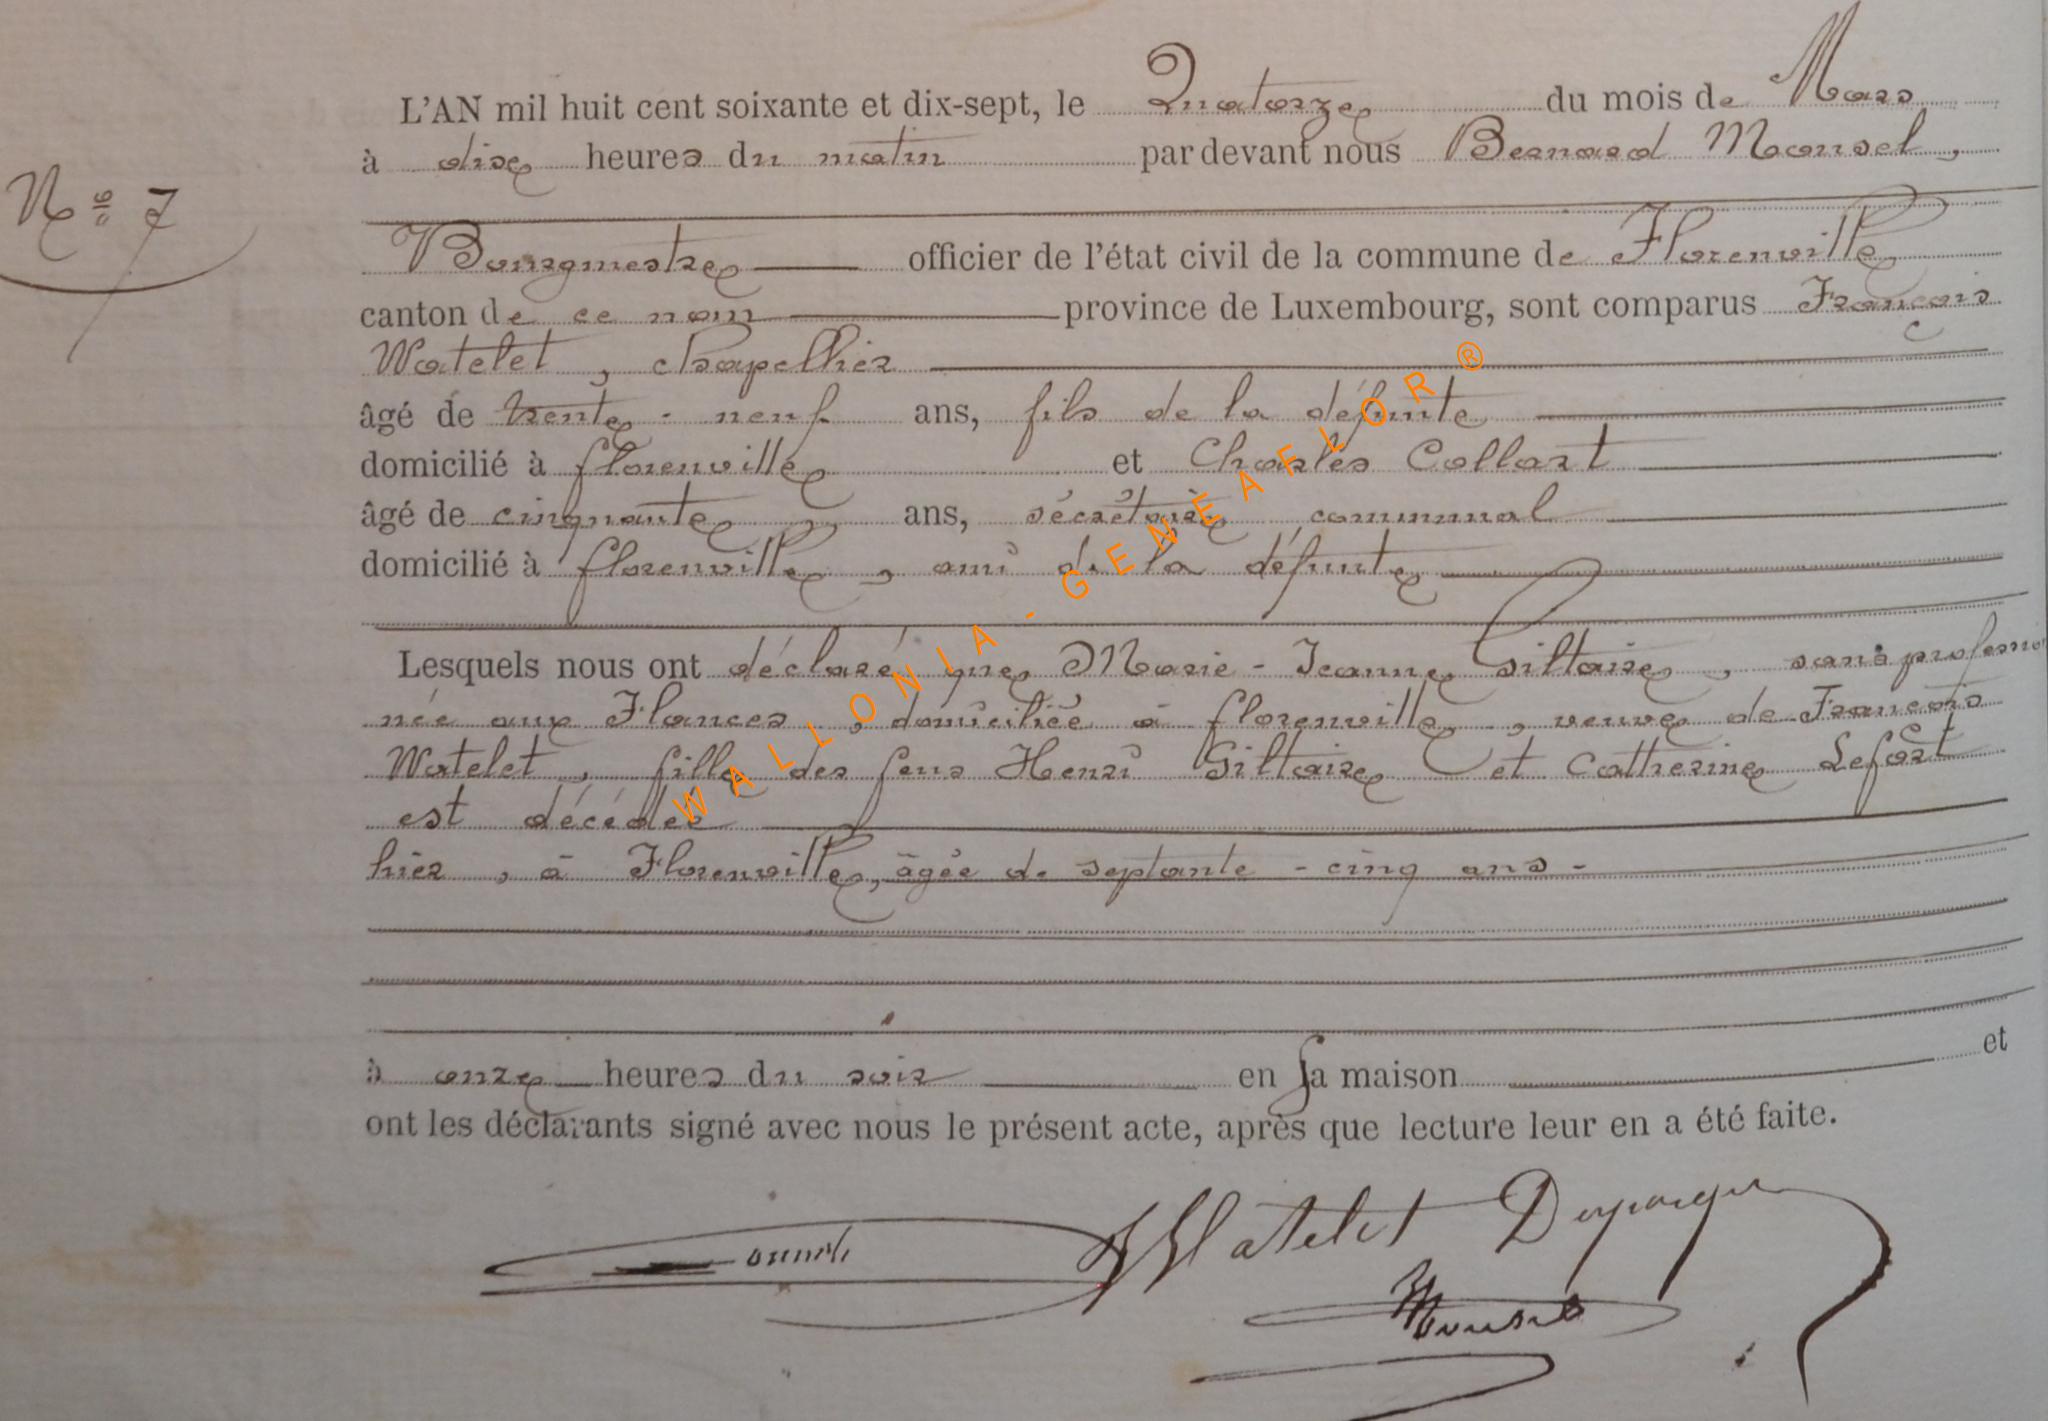 L'AN mil huit cent soixante et dix-sept, le Quatorze du mois de Mars
à dix heures du matin par devant nous Bernard Mousel,
N° 7
Bourgmestre officier de l'état civil de la commune de Florenville
canton de ce nom province de Luxembourg, sont comparus François
Watelet, chapellier
âgé de trente-neuf ans, fils de la défunte
domicilié à florenville et Charles Collart
âgé de cinquante ans, sécrétaire communal
domicilié à florenville, ami de la défunte
Lesquels nous ont déclaré que Marie-Jeanne Giltaire, sans profession
née aux Flances, domiciliée à florenville, veuve de François
Watelet, fille des feus Henri Giltaire et Catherine Lefort
est décédée
hier, à Florenville, âgée de septante-cinq ans-
à onze heures du soir en sa maison et
ont les déclarants signé avec nous le présent acte, après que lecture leur en a été faite.
Watelet
Mousel
WALLONIA-GENEAFLOR®